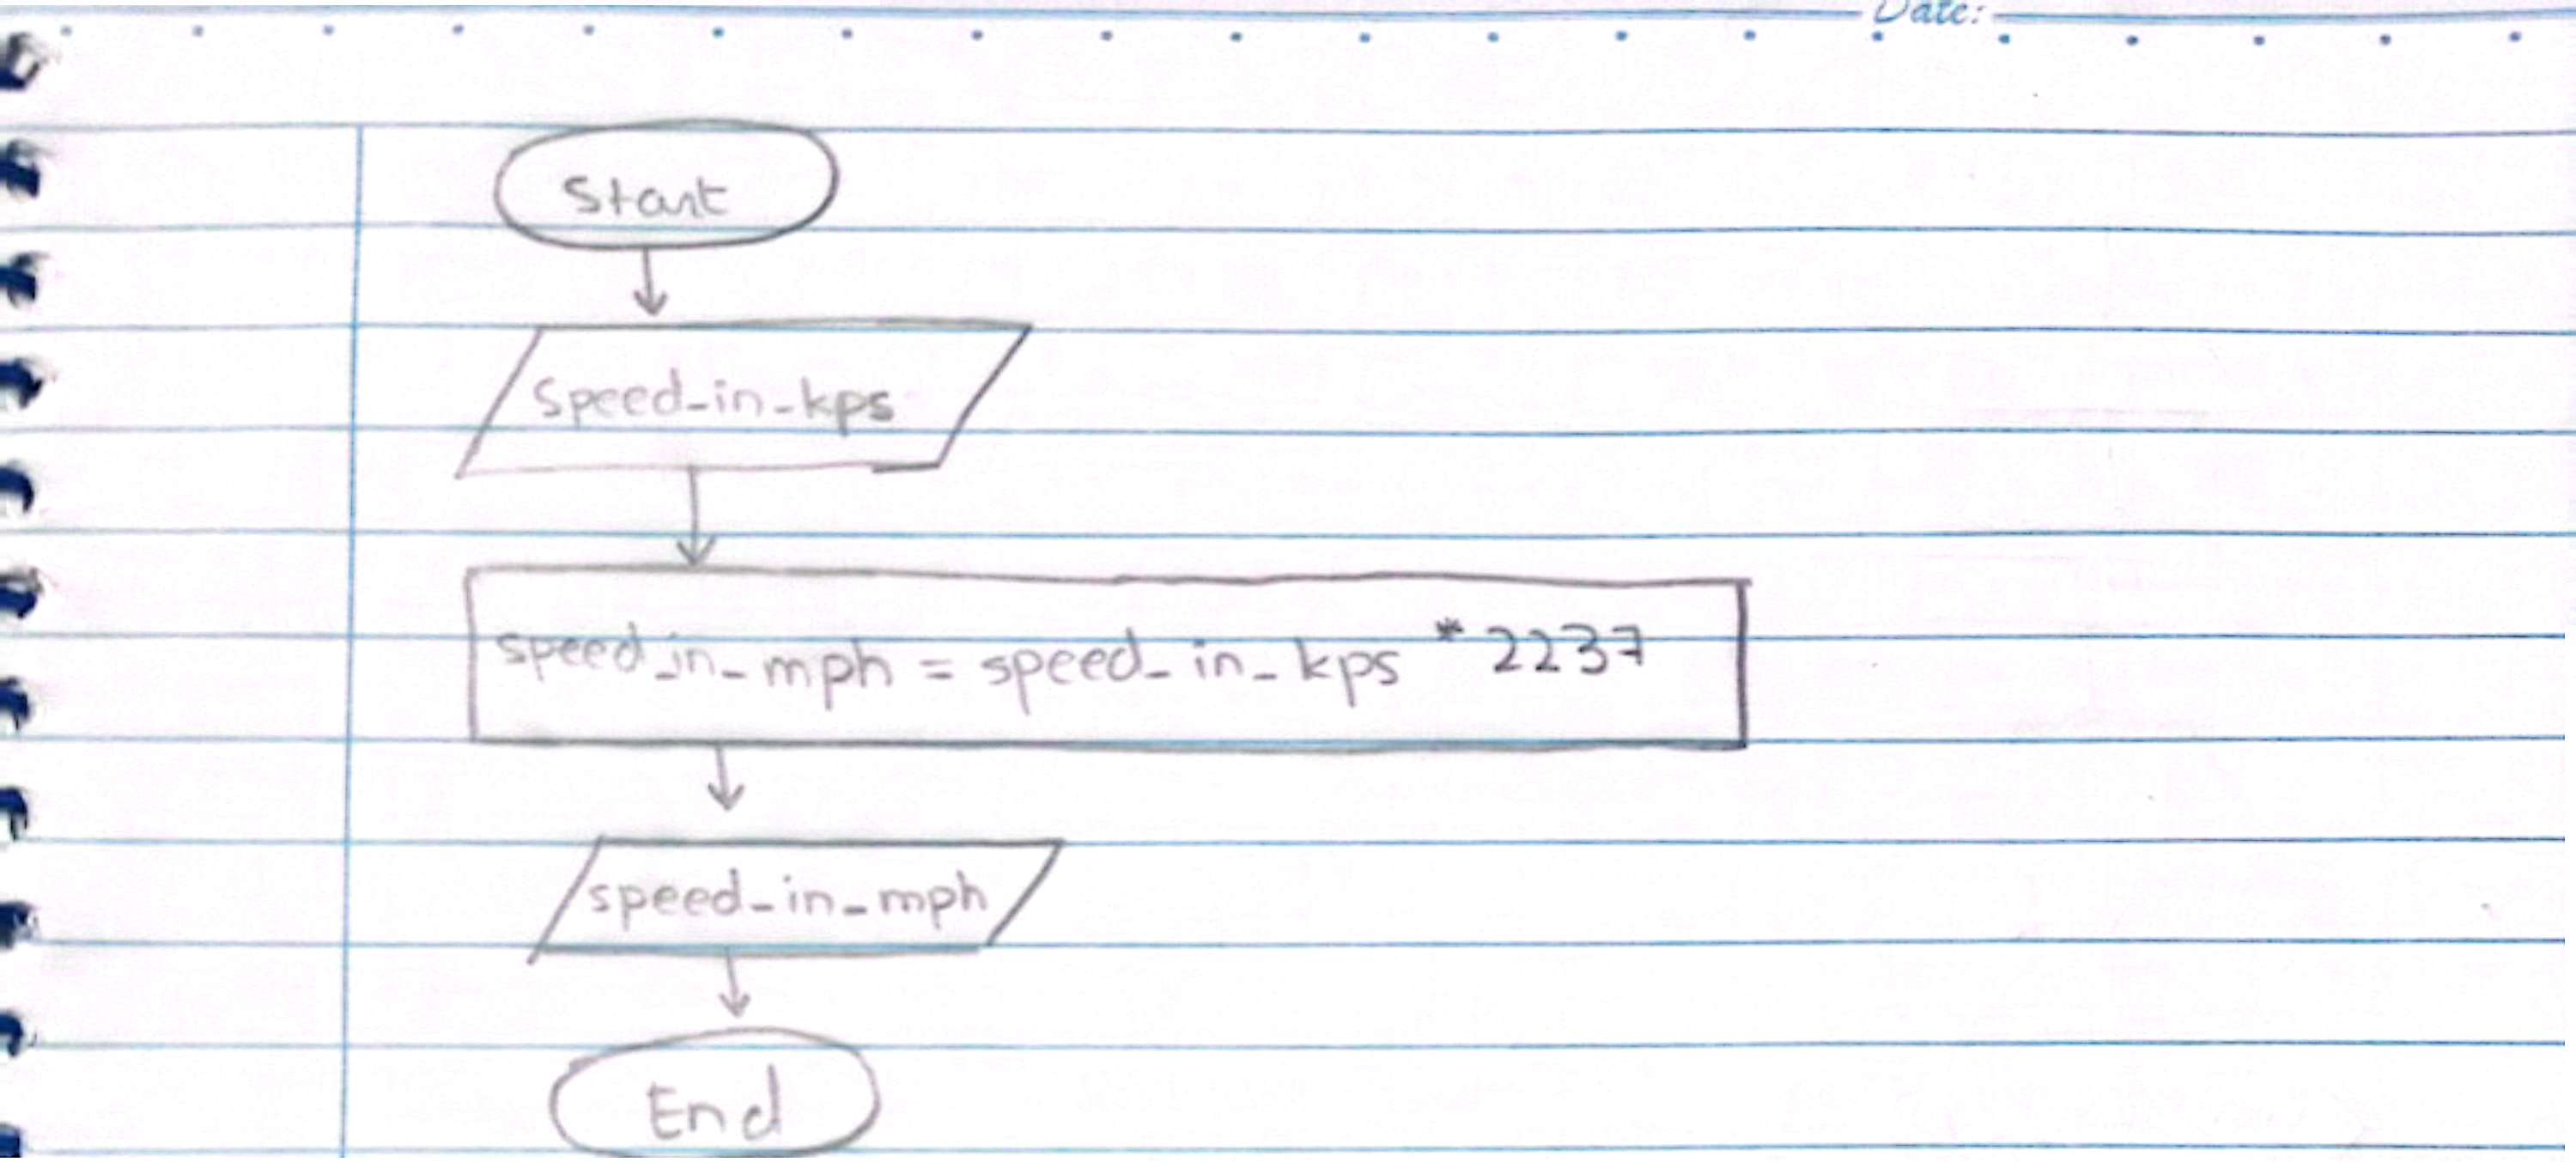 Date:
Start
Speed_in_kps
speed_in_mph = speed_in_kps * 2237
speed_in_mph
End